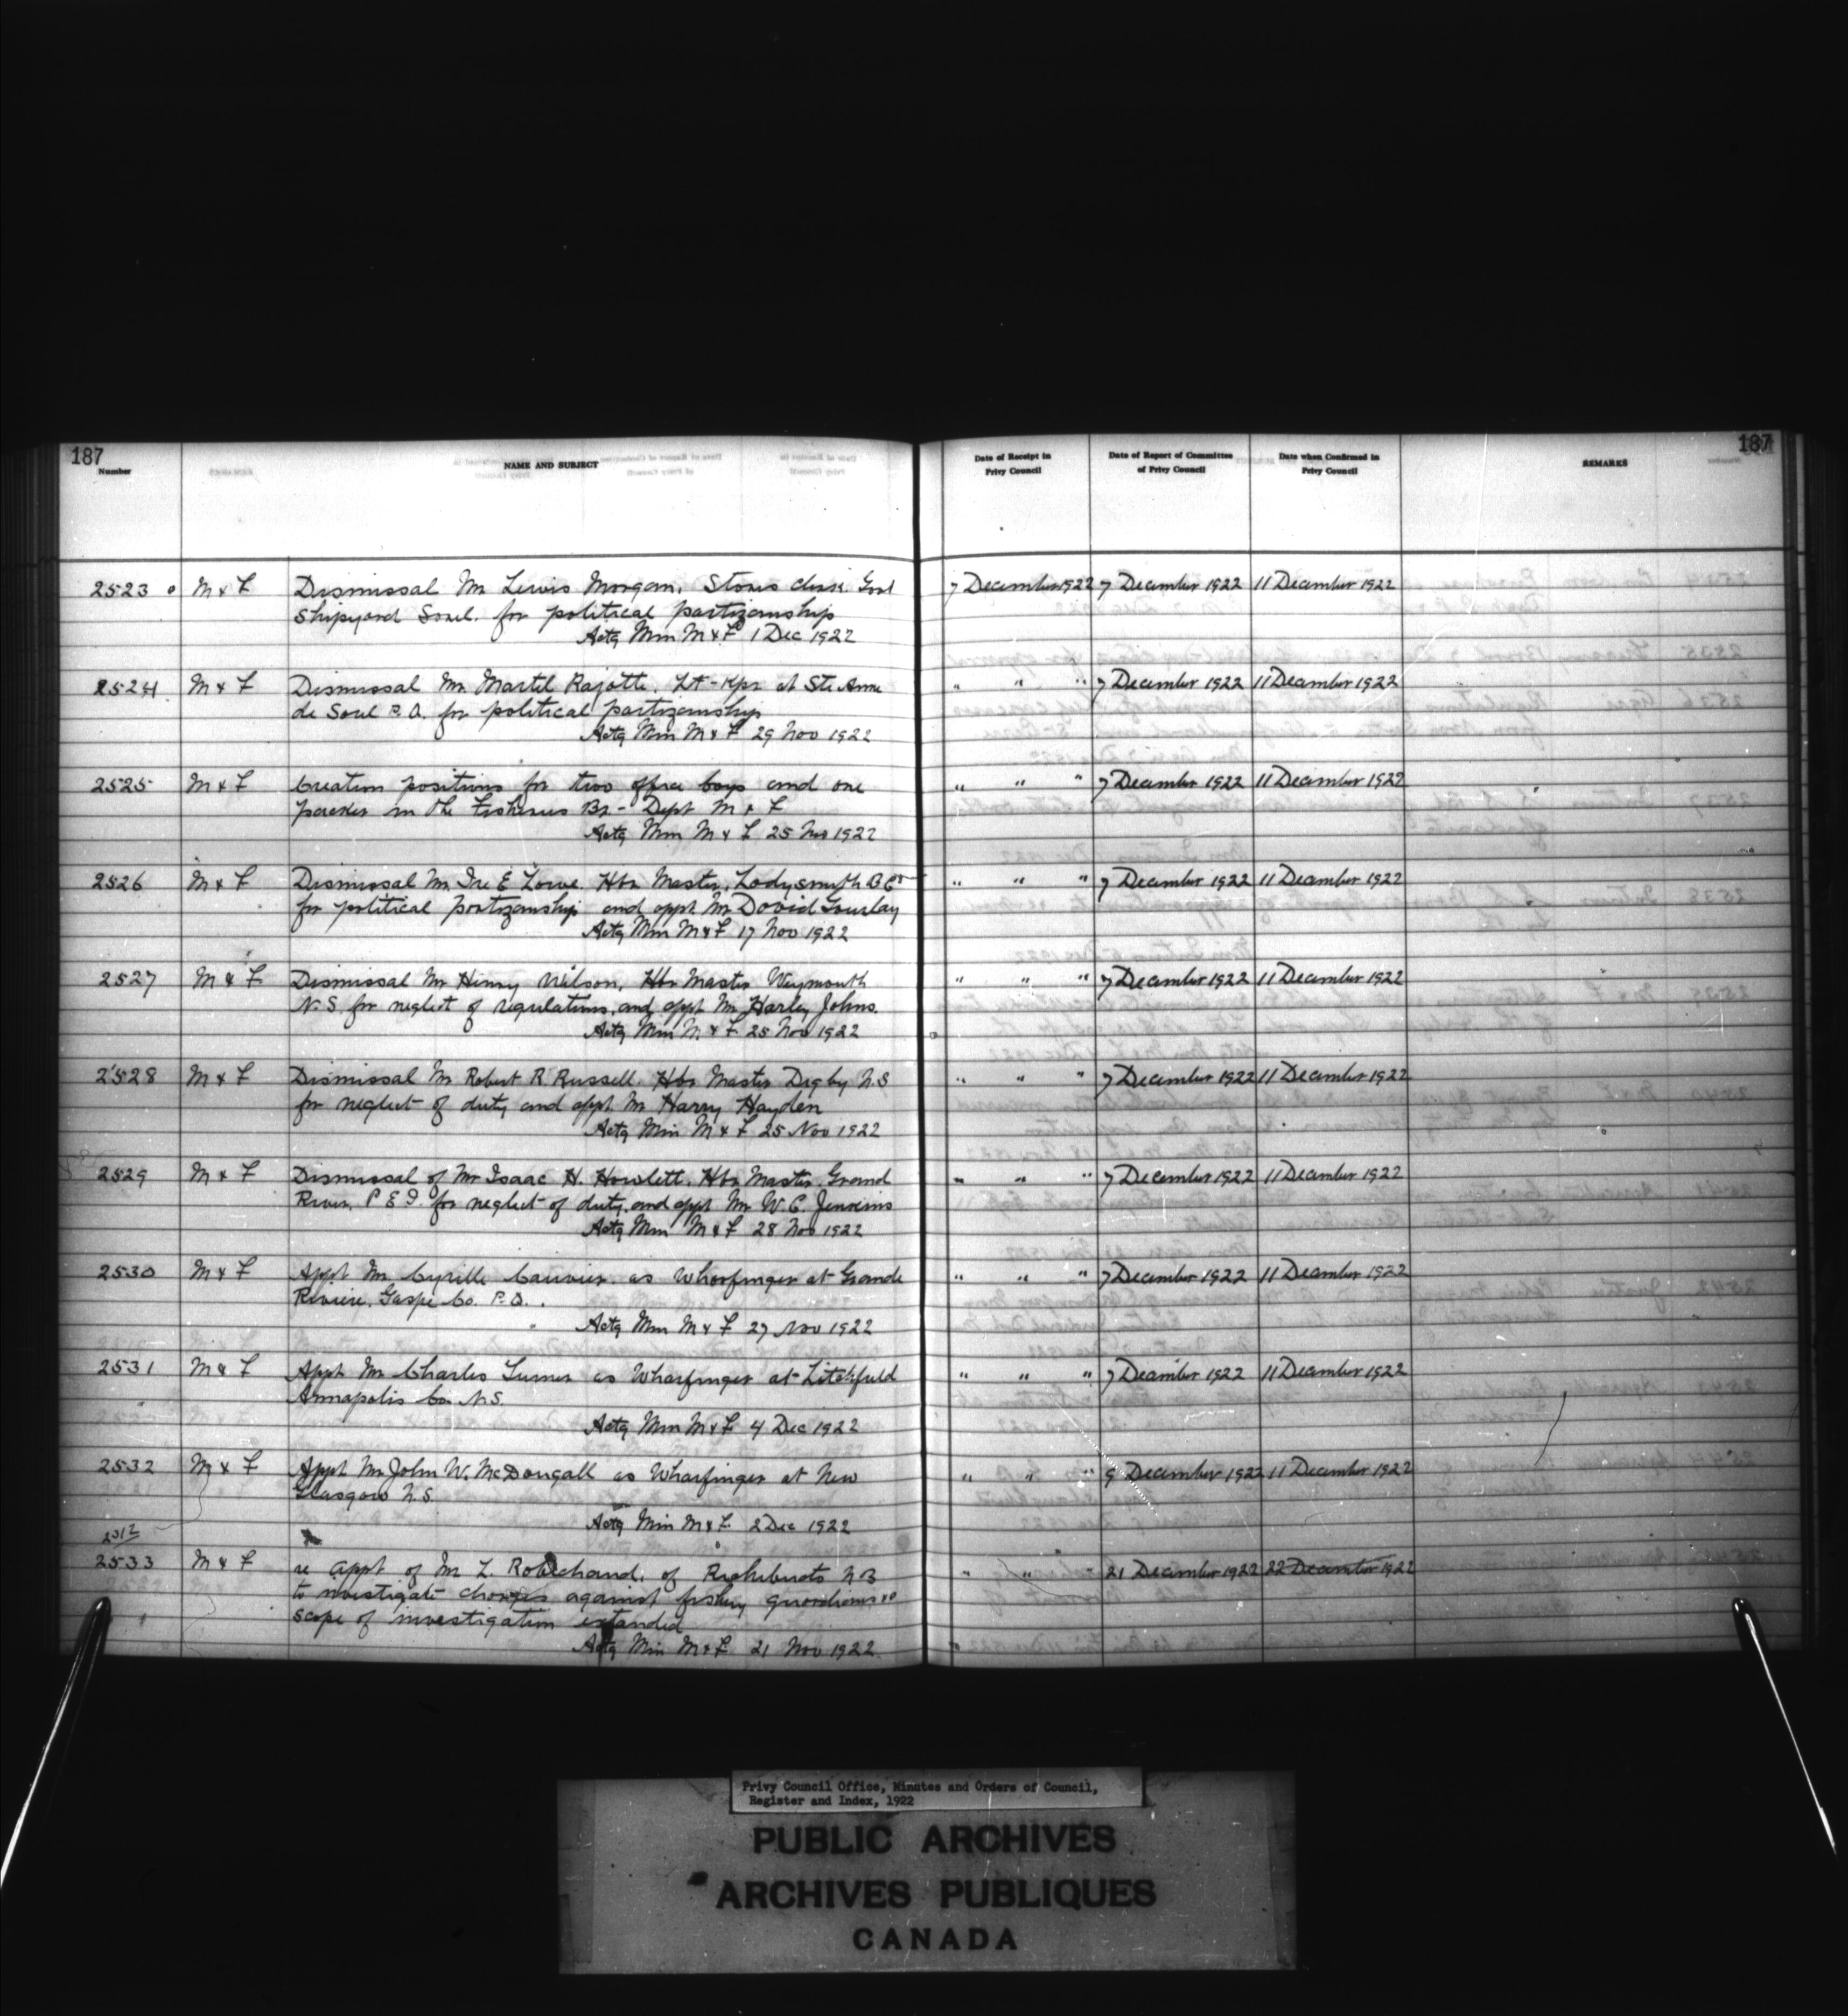 187
187
Number
NAME AND SUBJECT
Date of Receipt in Privy Council
Date of Report of Committee of Privy Council
Date when Confirmed in Privy Council
REMARKS
2523 M & F Dismissal Mr Lewis Morgan, Stores clerk. Govt 7 December 1922 7 December 1922 11 December 1922
Shipyard Sorel. for political partizanship
Actg Min M & F 1 Dec 1922
2524 M & F Dismissal Mr Martel Rajotte, Lt-Kpr at Ste Anne " " " 7 December 1922 11 December 1922
de Sorel P.Q. for political partizanship
Actg Min M & F 29 Nov 1922
2525 M & F Creation positions for two office boys and one " " " 7 December 1922 11 December 1922
packer in the Fisheries Br - Dept M & F
Actg Min M & F 25 Nov 1922
2526 M & F Dismissal Mr Ira E Lowe. Hbr Master, Ladysmith B C " " " 7 December 1922 11 December 1922
for political partizanship and appt Mr David Gourlay
Actg Min M & F 17 Nov 1922
2527 M & F Dismissal Mr Henry Wilson, Hbr Master Weymouth " " " 7 December 1922 11 December 1922
N.S. for neglect of regulations, and appt Mr Harley Johns.
Actg Min M & F 25 Nov 1922
2528 M & F Dismissal Mr Robert R Russell. Hbr Master Digby N.S " " " 7 December 1922 11 December 1922
for neglect of duty and appt Mr Harry Hayden
Actg Min M & F 25 Nov 1922
2529 M & F Dismissal of Mr Isaac H. Howlett. Hbr Master. Grand " " " 7 December 1922 11 December 1922
River, P E I for neglect of duty, and appt Mr W. C. Jenkins
Actg Min M & F 28 Nov 1922
2530 M & F Appt Mr Cyrille as Wharfinger at Grande " " " 7 December 1922 11 December 1922
Riviere. Gaspe Co. P.Q.
Actg Min M & F 27 Nov 1922
2531 M & F Appt Mr Charles Turner as Wharfinger at Litchfield " " " 7 December 1922 11 December 1922
Annapolis Co. N.S.
Actg Min M & F 4 Dec 1922
2532 M & F Appt Mr John W. McDougall as Wharfinger at New " " " 9 December 1922 11 December 1922
Glasgow N.S.
Actg Min M & F 2 Dec 1922
2533 M & F re appt of Mr L. Robichaud, of Richibucto N B " " " 21 December 1922 22 December 1922
to investigate charges against fishery guardians
scope of investigation extended
Actg Min M & F 21 Nov 1922
Privy Council Office, Minutes and Orders of Council,
Register and Index, 1922
PUBLIC ARCHIVES
ARCHIVES PUBLIQUES
CANADA